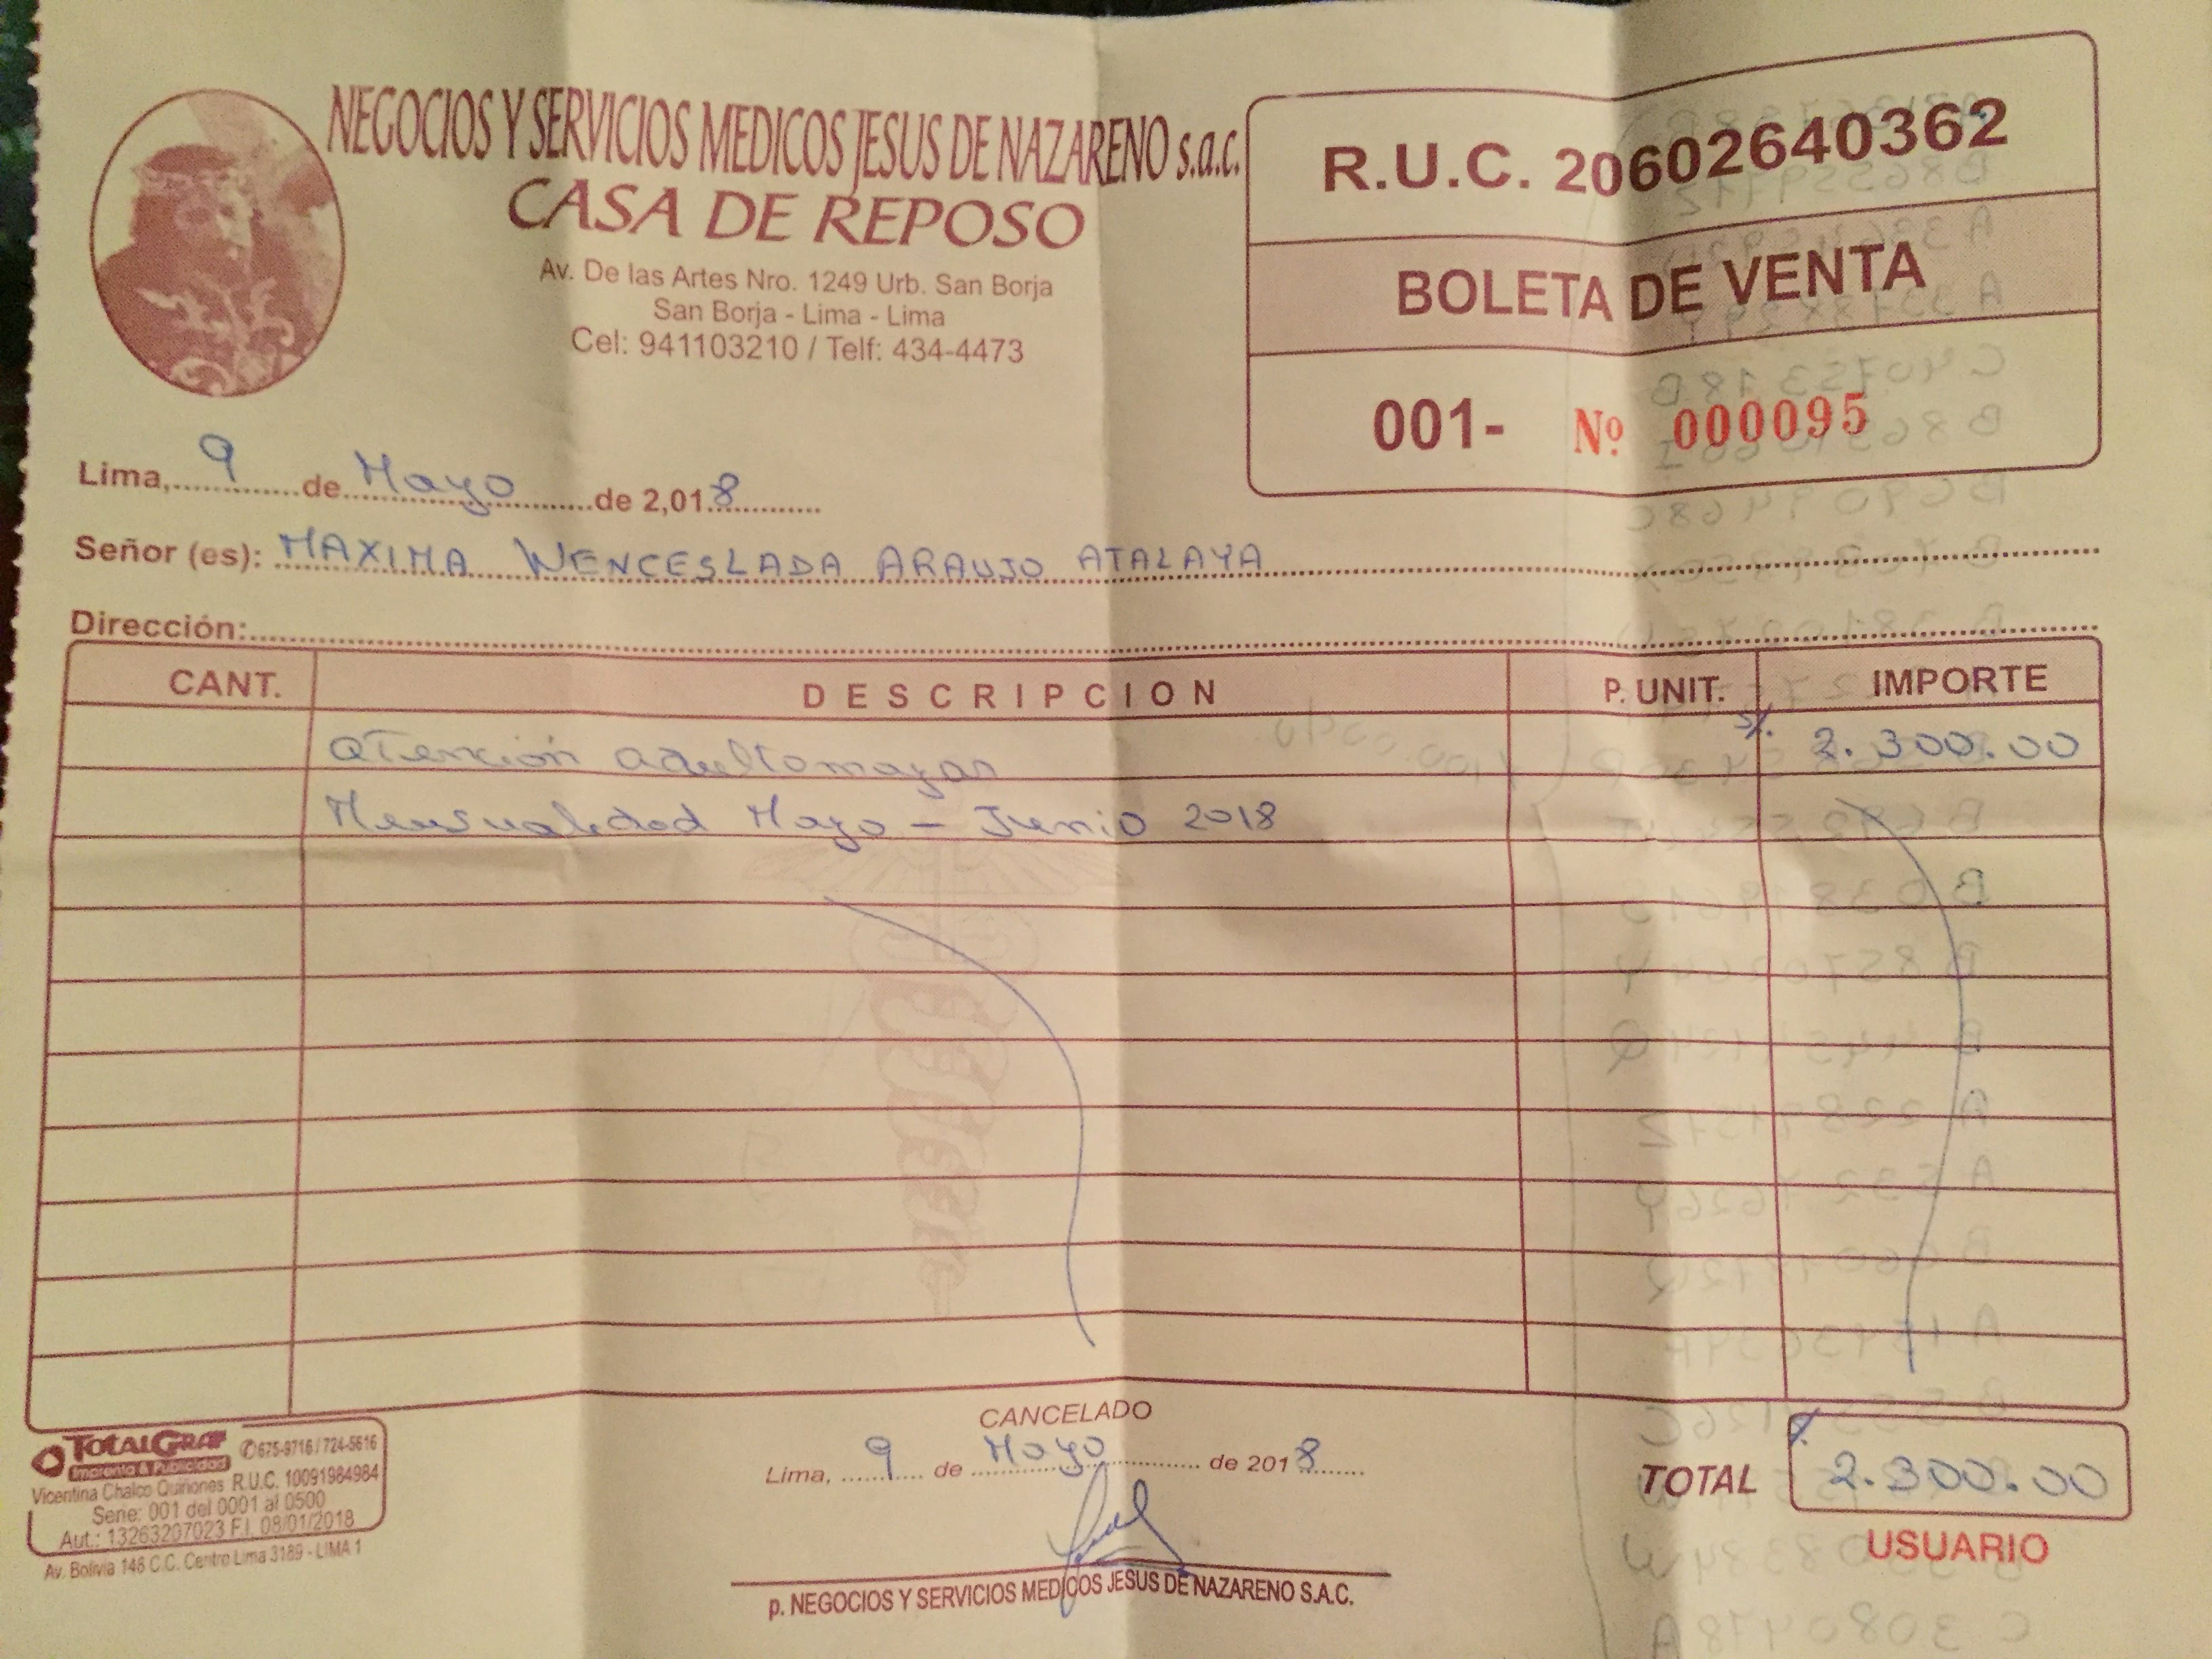 NEGOCIOS Y SERVICIOS MEDICOS JESUS DE NAZARENO s.a.c.
CASA DE REPOSO
Av. De las Artes Nro. 1249 Urb. San Borja
San Borja - Lima - Lima
Cel: 941103210 / Telf: 434-4473
R.U.C. 20602640362
BOLETA DE VENTA
001- Nº 000095
Lima, 9 de Mayo de 2,018
Señor (es): MAXIMA WENCESLADA ARAUJO ATALAYA
Dirección:
CANT. DESCRIPCION P. UNIT. IMPORTE
Atención adultomayor S/. 2.300.00
Mensualidad Mayo - Junio 2018
CANCELADO
Lima, 9 de Mayo de 2018
TOTAL S/. 2.300.00
USUARIO
p. NEGOCIOS Y SERVICIOS MEDICOS JESUS DE NAZARENO S.A.C.
TOTALGRAF 675-9716 / 724-5616
Imprenta & Publicidad
Vicentina Chalco Quiñones R.U.C. 10091984984
Serie: 001 del 0001 al 0500
Aut.: 13263207023 F.I. 08/01/2018
Av. Bolivia 148 C.C. Centro Lima 3189 - LIMA 1